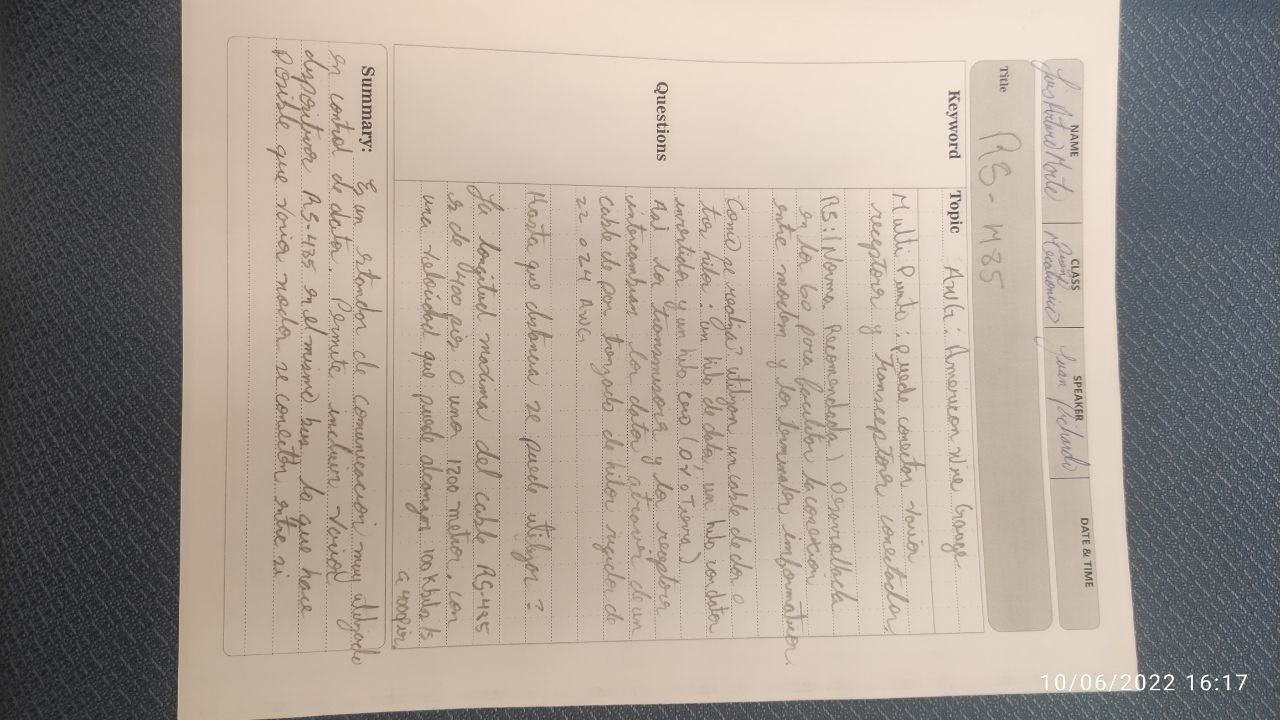 NAME
CLASS
SPEAKER
DATE & TIME
Luis Arturo
Juan
Title
RS-485
Keyword
Topic
AWG: American Wire Gauge
Multi Punto: puede conectar varios
receptores y transceptores conectados.
RS: (Norma Recomendada) Desarrollada
en los 60 para facilitar la conexion
entre modem y los terminales informaticos.
Como se realiza? utilizan un cable de dos o
tres hilos: un hilo de data un hilo con datos
invertidos y un hilo (0V o Tierra)
Así los transmisores y los receptores
intercambian los datos atraves de un
cable de par trenzado de hilos rigidos de
22 o 24 AWG
Questions
Hasta que distancia se puede utilizar?
La longitud maxima del cable RS-485
es de 4000 pies o unos 1200 metros. con
una velocidad que puede alcanzar 100 Kbits/s
a 4000 pies
Summary:
Es un standar de comunicacion muy utilizado
en control de datos. Permite incluir varios
dispositivos RS-485 en el mismo bus lo que hace
posible que varios nodos se conecten entre si
10/06/2022 16:17